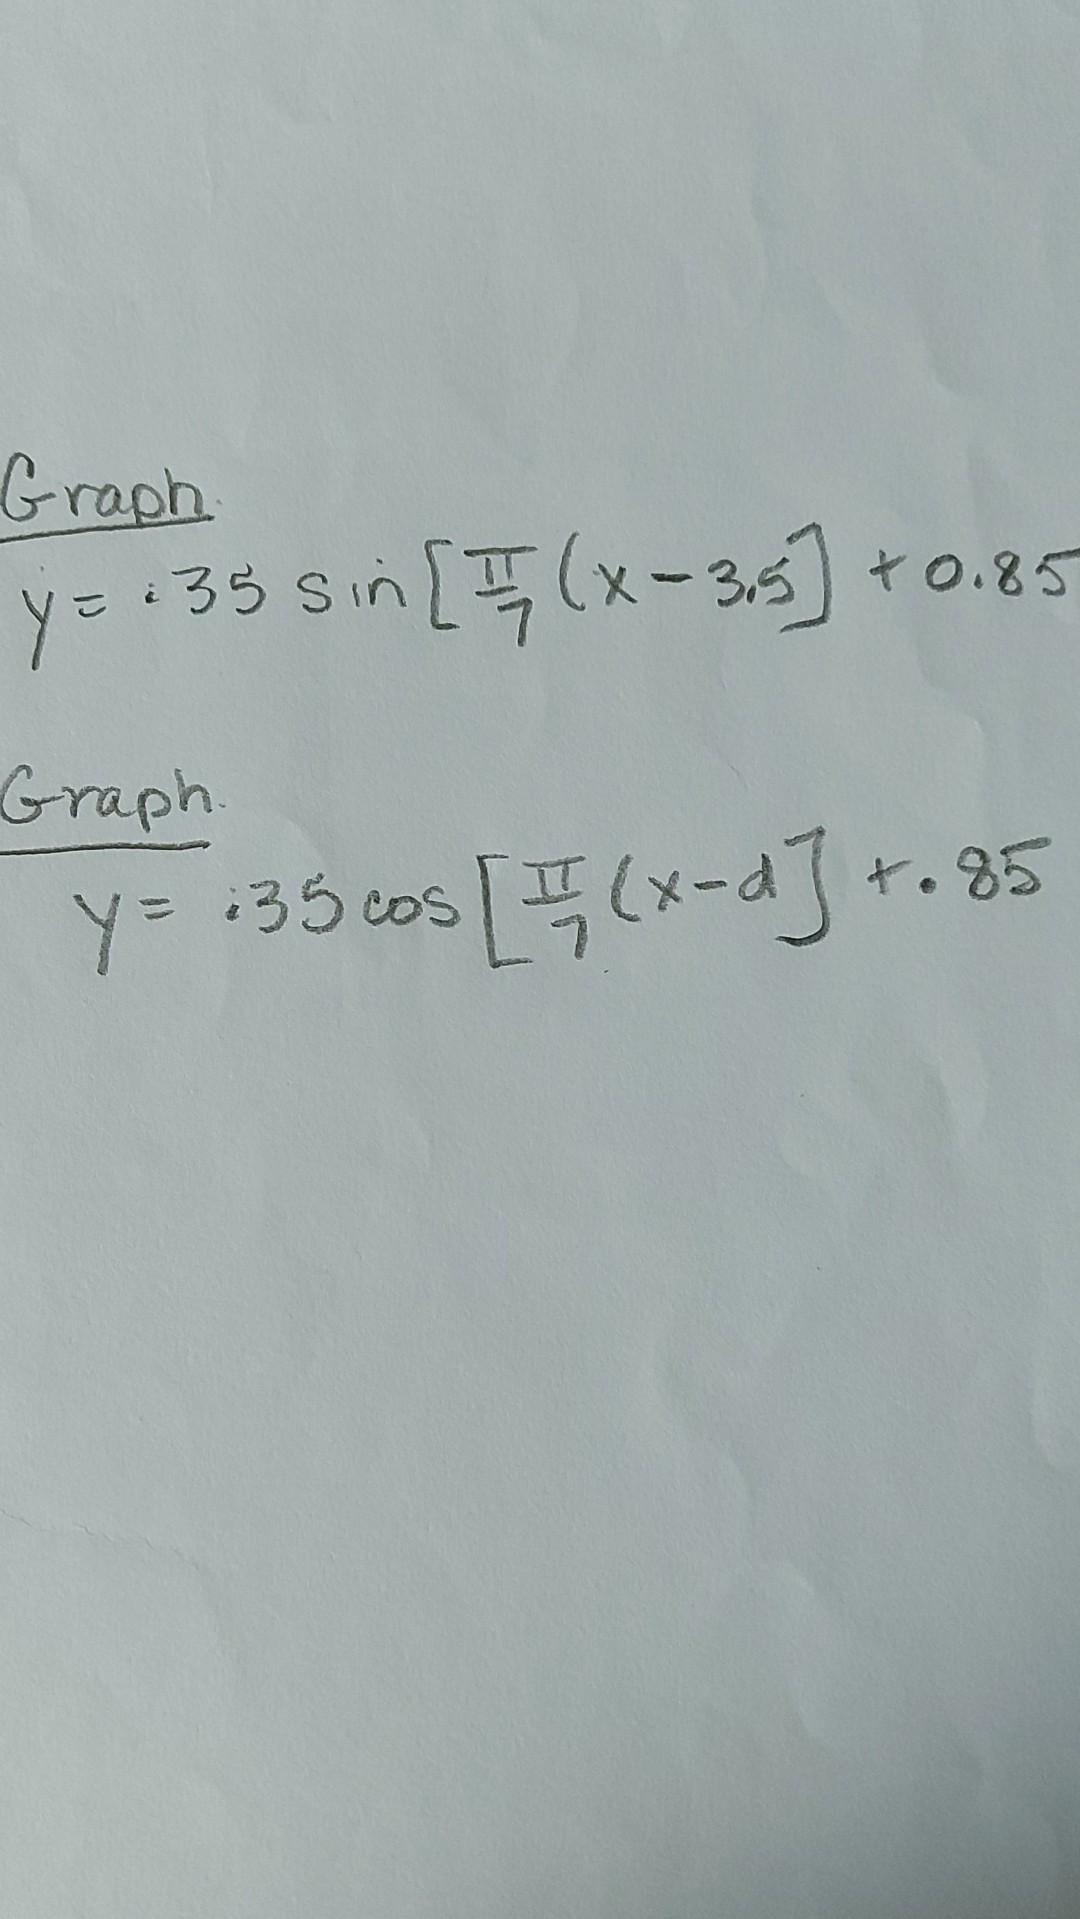 Graph.
y = .35 sin [π/7 (x - 3.5] + 0.85
Graph.
y = .35 cos [π/7 (x - d] + .85